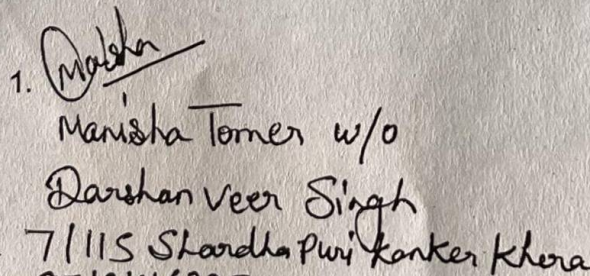 1.
Manisha Tomer w/o
Darshan Veer Singh
7/115 Shardha Puri Kanker Khera